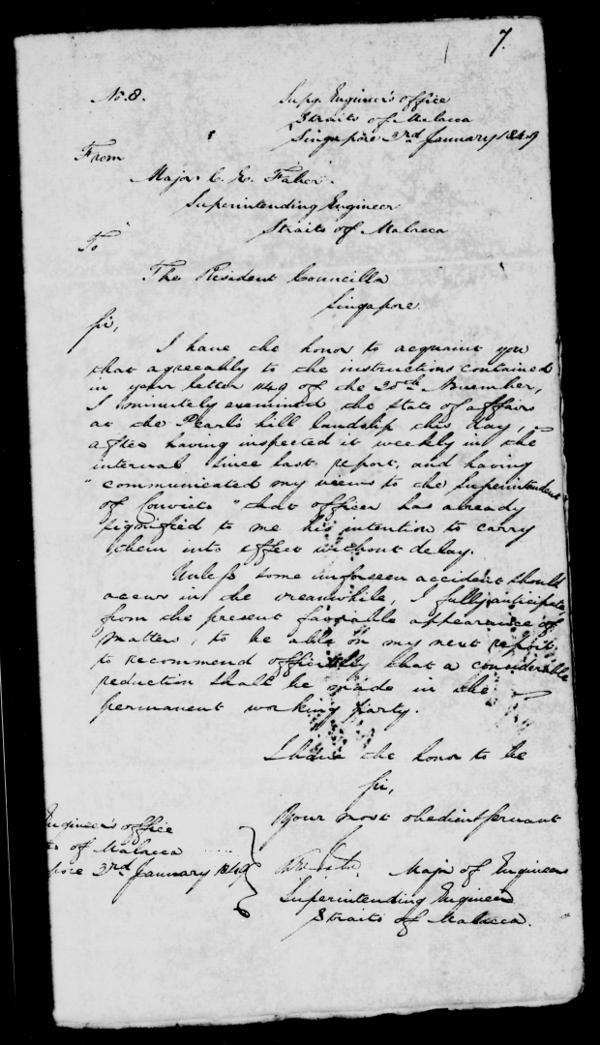 7.
No. 8.
Supg. Engineer's office
Straits of Malacca
Singapore 3rd January 1849
From
Major C. E. Faber.
Superintending Engineer
Straits of Malacca
To
The Resident Councillor
Singapore.
Sir,
I have the honor to acquaint you
that agreeably to the instructions contained
in your letter 1149 of the 20th November,
I minutely examined the state of affairs
at the Pearl's hill landslip this day,
after having inspected it weekly in the
interval since last report, and having
"communicated my views to the Superintendent
of Convicts" that officer has already
signified to me his intention to carry
them into effect without delay.
Unless some unforseen accident should
occur in the meanwhile, I fully anticipate
from the present favorable appearance of
matters, to be able in my next report,
to recommend officially that a considerable
reduction shall be made in the
permanent working party.
I have the honor to be
Sir,
Your most obedient servant
Major of Engineers
Superintending Engineer
Straits of Malacca.
Engineer's office
of Malacca
3rd January 1849